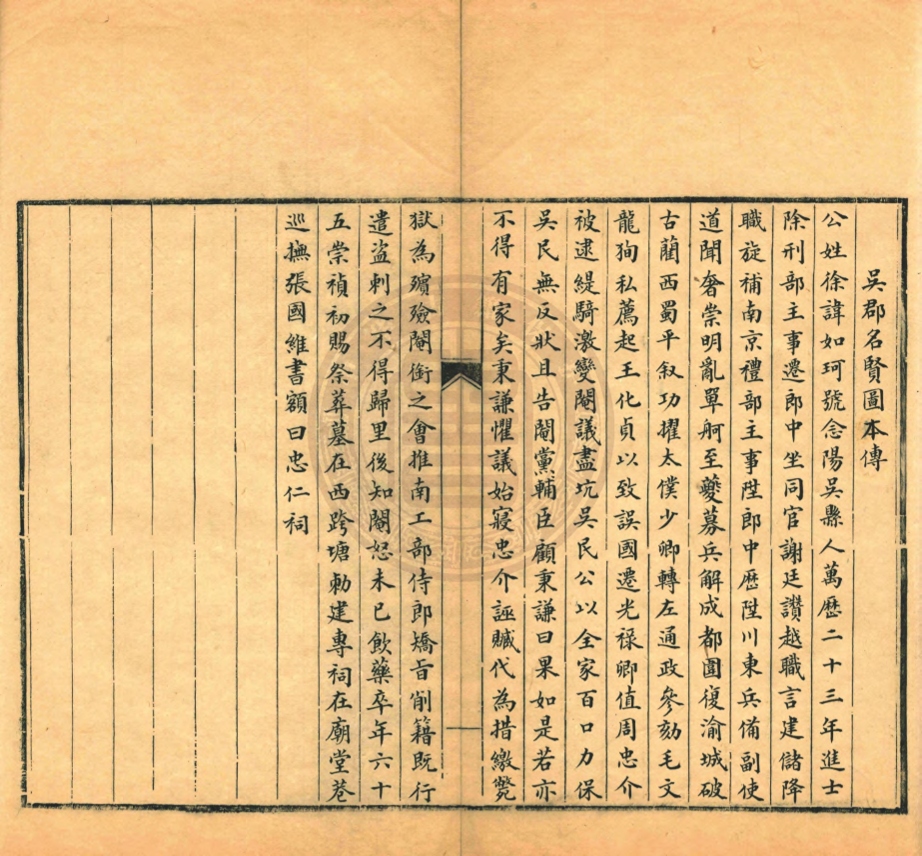 吳郡名賢圖本傳
公姓徐諱如珂號念陽吳縣人萬歷二十三年進士
除刑部主事遷郎中坐同官謝廷讚越職言建儲降
職旋補南京禮部主事陞郎中歷陞川東兵備副使
道聞奢崇明亂單舸至夔募兵解成都圍復渝城破
古藺西蜀平叙功擢太僕少卿轉左通政參劾毛文
龍狥私薦起王化貞以致誤國遷光禄卿值周忠介
被逮緹騎激變閹議盡坑吳民公以全家百口力保
吳民無反狀且告閹黨輔臣顧秉謙曰果如是若亦
不得有家矣秉謙懼議始寢忠介誣贓代為措繳斃
獄為殯殮閹銜之會推南工部侍郎矯旨削籍既行
遣盜刺之不得歸里後知閹怒未已飲藥卒年六十
五崇禎初賜祭葬墓在西跨塘勅建專祠在廟堂巷
巡撫張國維書額曰忠仁祠